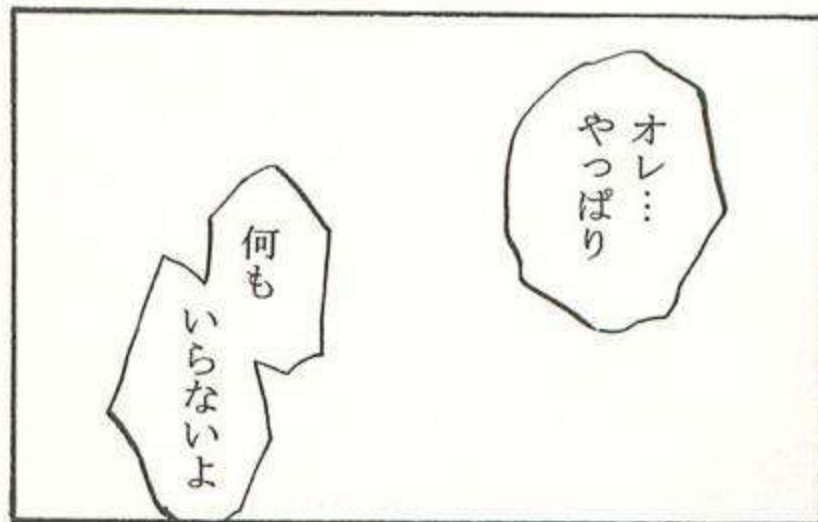 オレ…
やっぱり
何も
いらないよ